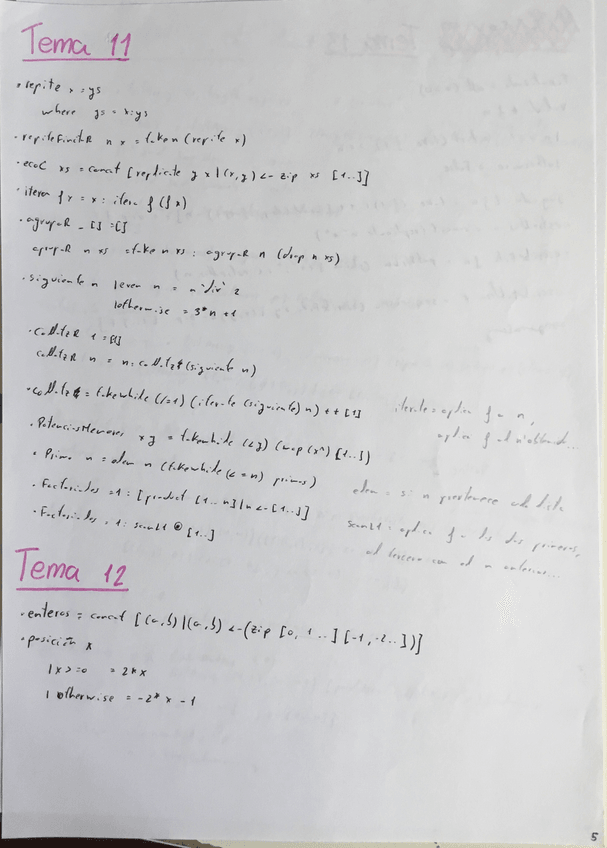 Tema 11
· repite x = ys
where ys = x:ys
· repiteFinitaR n x = take n (repite x)
· ecoC xs = concat [replicate y x | (x,y) <- zip xs [1..]]
· itera f x = x : itera f (f x)
· agrupaR _ [] = []
agrupaR n xs = take n xs : agrupaR n (drop n xs)
· siguiente n | even n = n `div` 2
| otherwise = 3*n+1
· CollatzR 1 = [1]
collatzR n = n : collatzR (siguiente n)
· Collatz = takewhile (/=1) (iterate (siguiente) n) ++ [1]
iterate = aplica f a n,
aplica f al
· PotenciasMenores x y = takewhile (<y) (map (x^) [1..])
· Primo n = elem n (takewhile (<=n) primos)
elem = si n pertenece a la lista
· Factoriales = 1 : [product [1..n] | n <- [1..]]
· Factoriales = 1 : scanl1 (*) [1..]
scanl1 : aplica f a los dos primeros,
al tercero con el n anterior...
Tema 12
· enteros = concat [(a,b) | (a,b) <- (zip [0,1..] [-1,-2..])]
· posición x
| x >= 0 = 2*x
| otherwise = -2*x-1
5